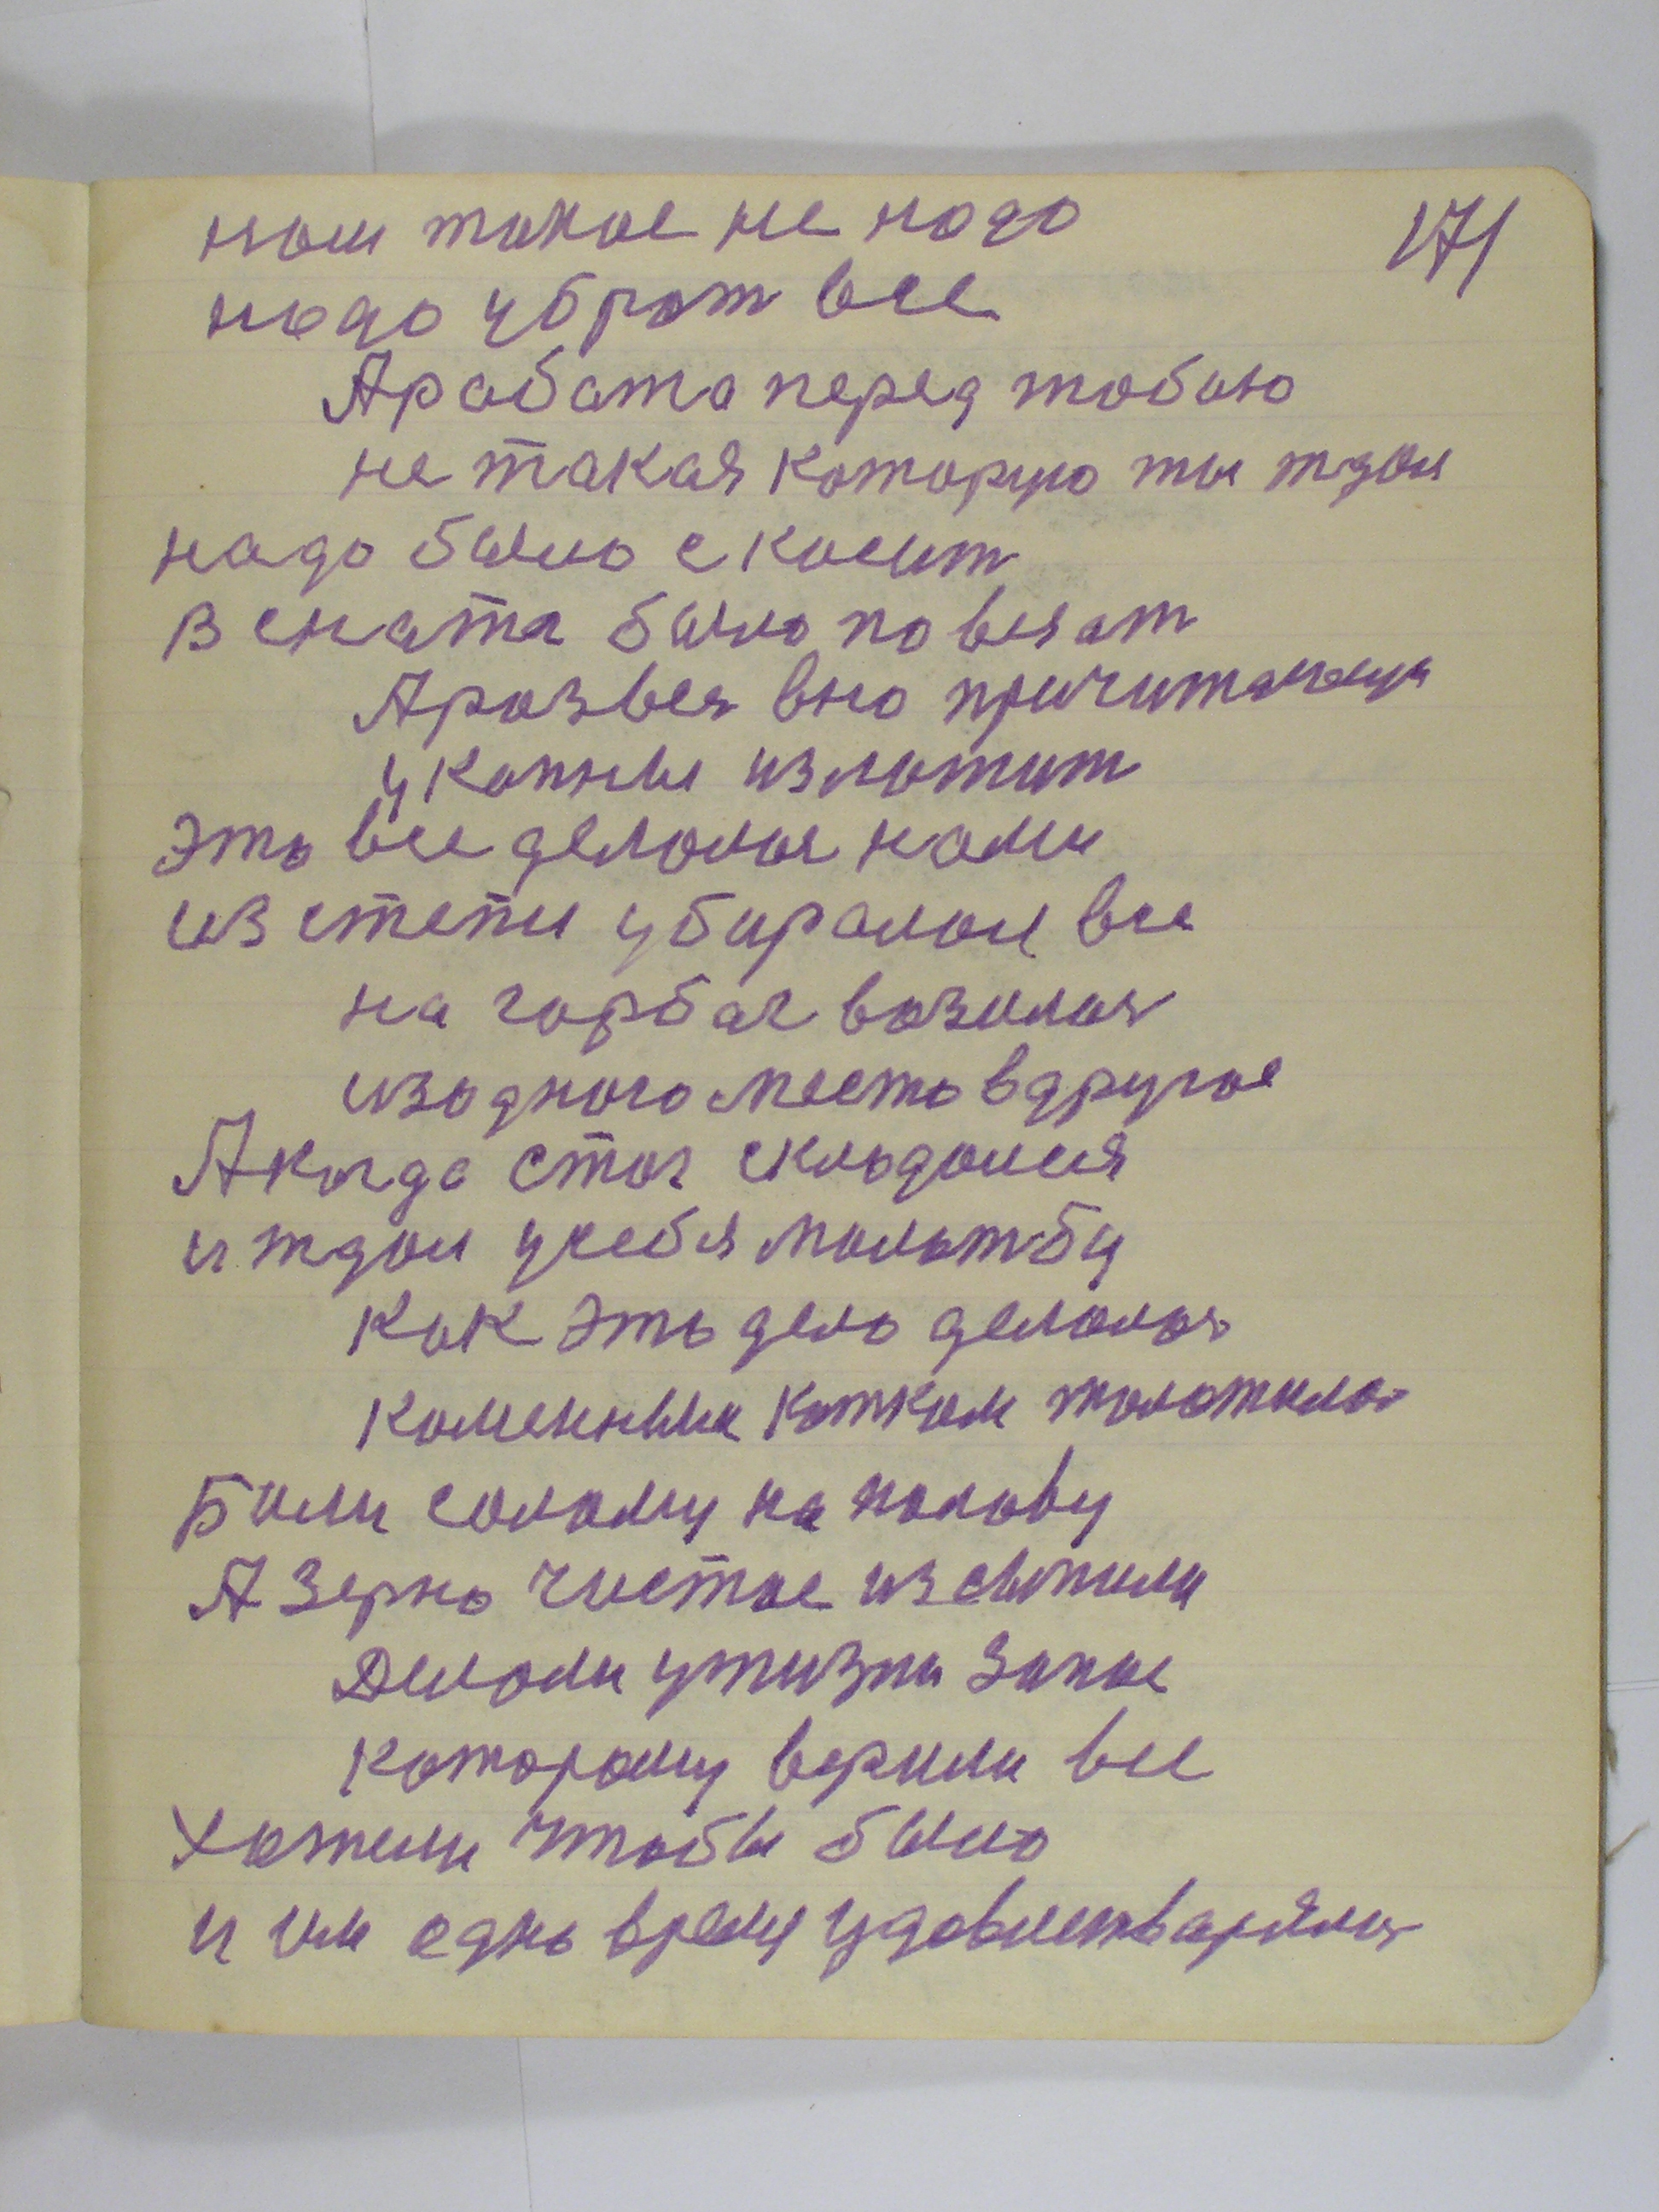 171
нам такое не надо
надо убрат все
А работа перед тобою
не такая которую ты ждал
надо было скосит
В снопа было повязат
А развея вно
у копны измотит
Это все делалоя нами
из степи убиралои все
на горбаг возилоя
из одного место в другое
А когда стог складался
и ждал у себя молотбы
Как это дело делалоя
каменным катком молотилоя
Били солому на полову
А зерно чистое из сыпили
Делали у жизни запас
которому верили все
Хотели чтобы было
и им одно время удовлетварялия